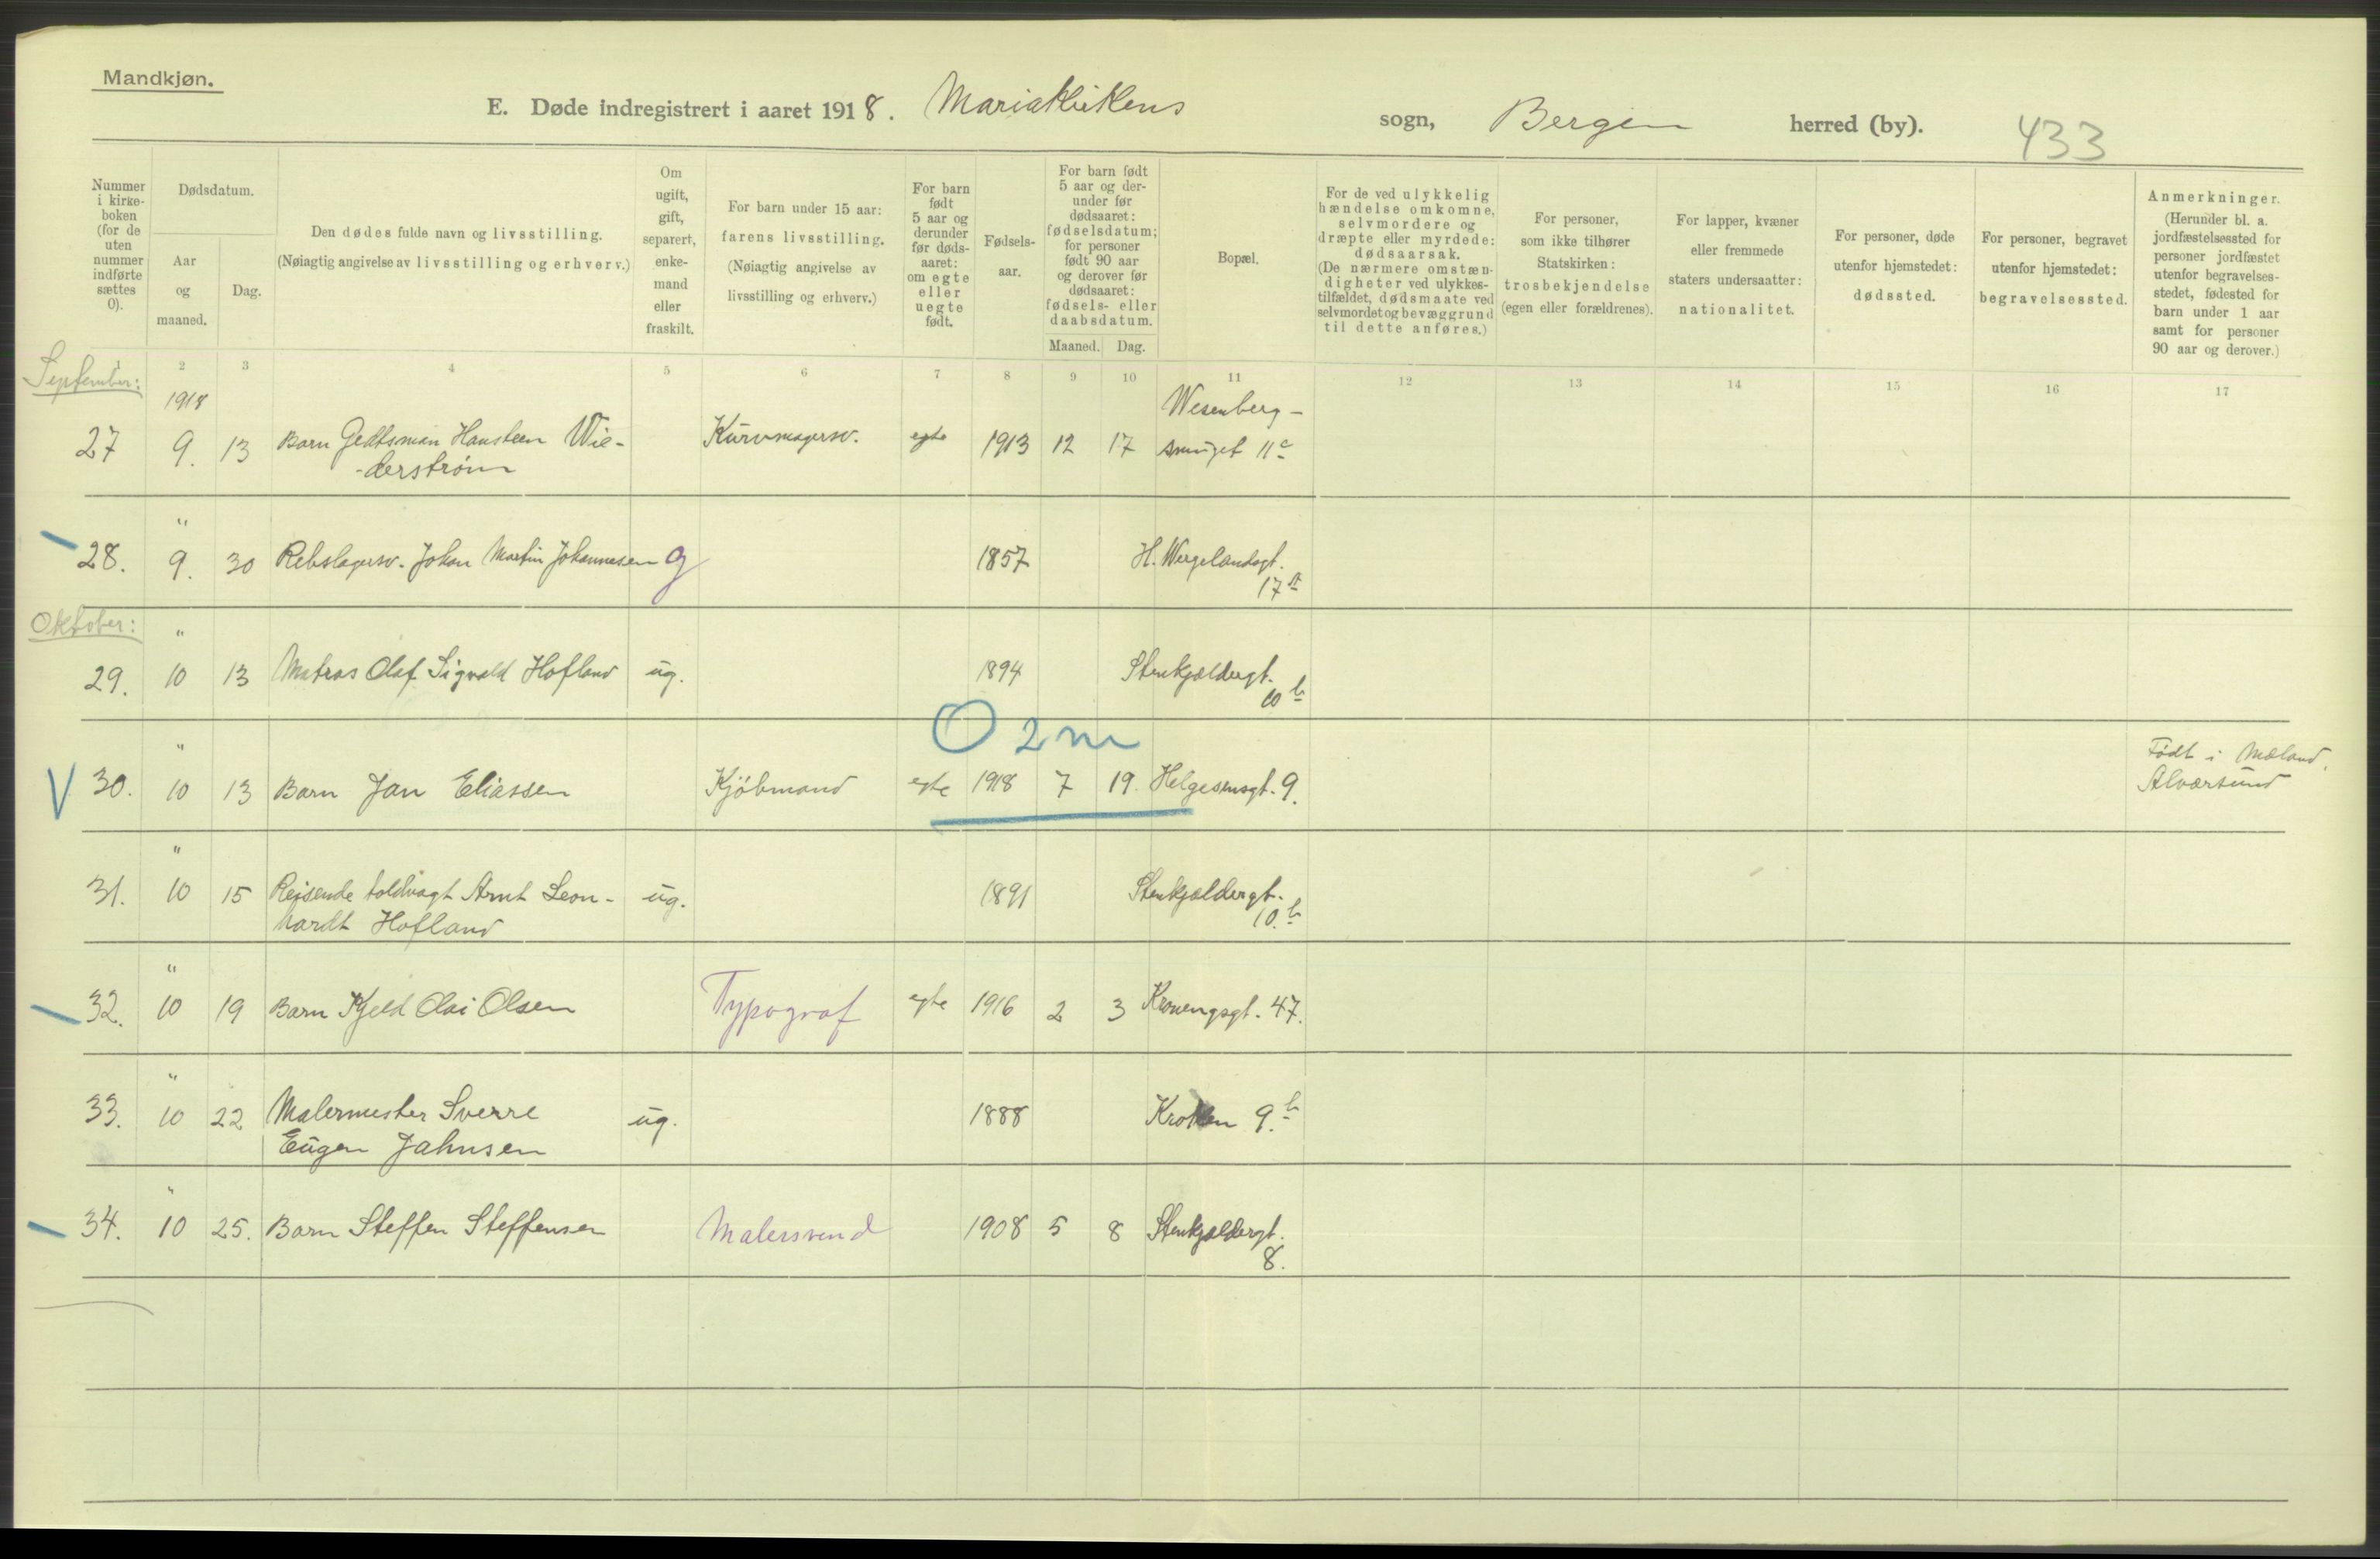 Mandkjøn.
E. Døde indregistrert i aaret 1918. Mariakirkens sogn, Bergen herred (by). 433
Nummer i kirke-boken (for de uten nummer indførte sættes 0).
Dødsdatum.
Aar og maaned.
Dag.
Den dødes fulde navn og livsstilling.
(Nøiagtig angivelse av livsstilling og erhverv.)
Om ugift, gift, separert, enke-mand eller fraskilt.
For barn under 15 aar: farens livsstilling.
(Nøiagtig angivelse av livsstilling og erhverv.)
For barn født 5 aar og derunder før døds-aaret: om egte eller uegte født.
Fødsels-aar.
For barn født 5 aar og der-under før dødsaaret: fødselsdatum; for personer født 90 aar og derover før dødsaaret: fødsels- eller daabsdatum.
Maaned. Dag.
Bopæl.
For de ved ulykkelig hændelse omkomne, selvmordere og dræpte eller myrdede: dødsaarsak.
(De nærmere omstæn-digheter ved ulykkes-tilfældet, dødsmaate ved selvmordet og bevæggrund til dette anføres.)
For personer, som ikke tilhører Statskirken: trosbekjendelse (egen eller forældrenes).
For lapper, kvæner eller fremmede staters undersaatter: nationalitet.
For personer, døde utenfor hjemstedet: dødssted.
For personer, begravet utenfor hjemstedet: begravelsessted.
Anmerkninger.
(Herunder bl. a. jordfæstelsessted for personer jordfæstet utenfor begravelses-stedet, fødested for barn under 1 aar samt for personer 90 aar og derover.)
1 2 3 4 5 6 7 8 9 10 11 12 13 14 15 16 17
September:
1918
27 9. 13 Barn Hansteen Wie-
-derstrøm
Kurvmagersv. egte 1913 12 17 Wesenberg-
smuget 11 c
"
28. 9. 30 Rebslagersv. Johan Martin Johannesen g 1857 H. Wergelandsgt.
17 a
Oktober:
"
29. 10 13 Matros Olaf Sigvald Hofland ug. 1894 Stenkjældergt.
10 b
O 2 m
"
V 30. 10 13 Barn Jan Eliassen Kjøbmand egte 1918 7 19. Helgesensgt. 9. Født i Mæland,
Alværsund
"
31. 10 15 Reisende toldvagt Arnt Leon-
hardt Hofland ug. 1891 Stenkjældergt.
10. b
"
32. 10 19 Barn Kjeld Olai Olsen Typograf egte 1916 2 3 Kronengsgt. 47.
"
33. 10 22 Malermester Sverre
Eugen Jahnsen ug. 1888 Krokken 9. b
"
34. 10 25. Barn Steffen Steffensen Malersvend 1908 5 8 Stenkjældergt.
8.